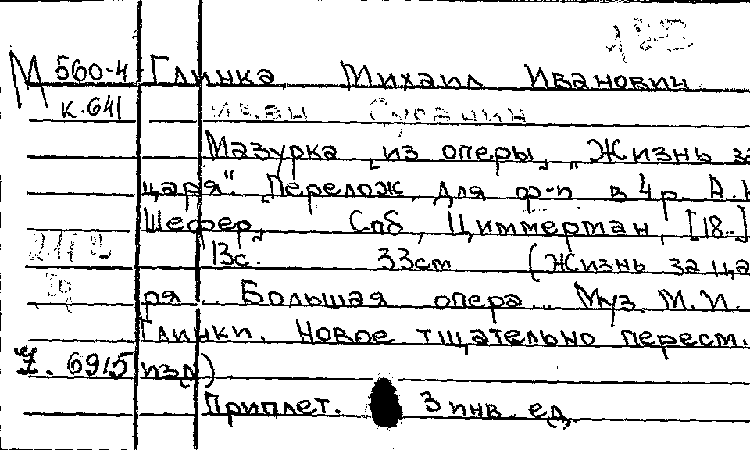 М 560-4 Глинка Михаил Иванович
К.641 Иван Сусанин
Мазурка из оперы „Жизнь за
царя". Перелож. для ф-п. в 4 р.
Шефер, Спб, Циммерман, [18..]
13с. 33см (Жизнь за ца
ря. Большая опера... Муз. М.И.
Глинки. Новое тщательно пересм.
изд)
Приплет. 3 инв. ед.